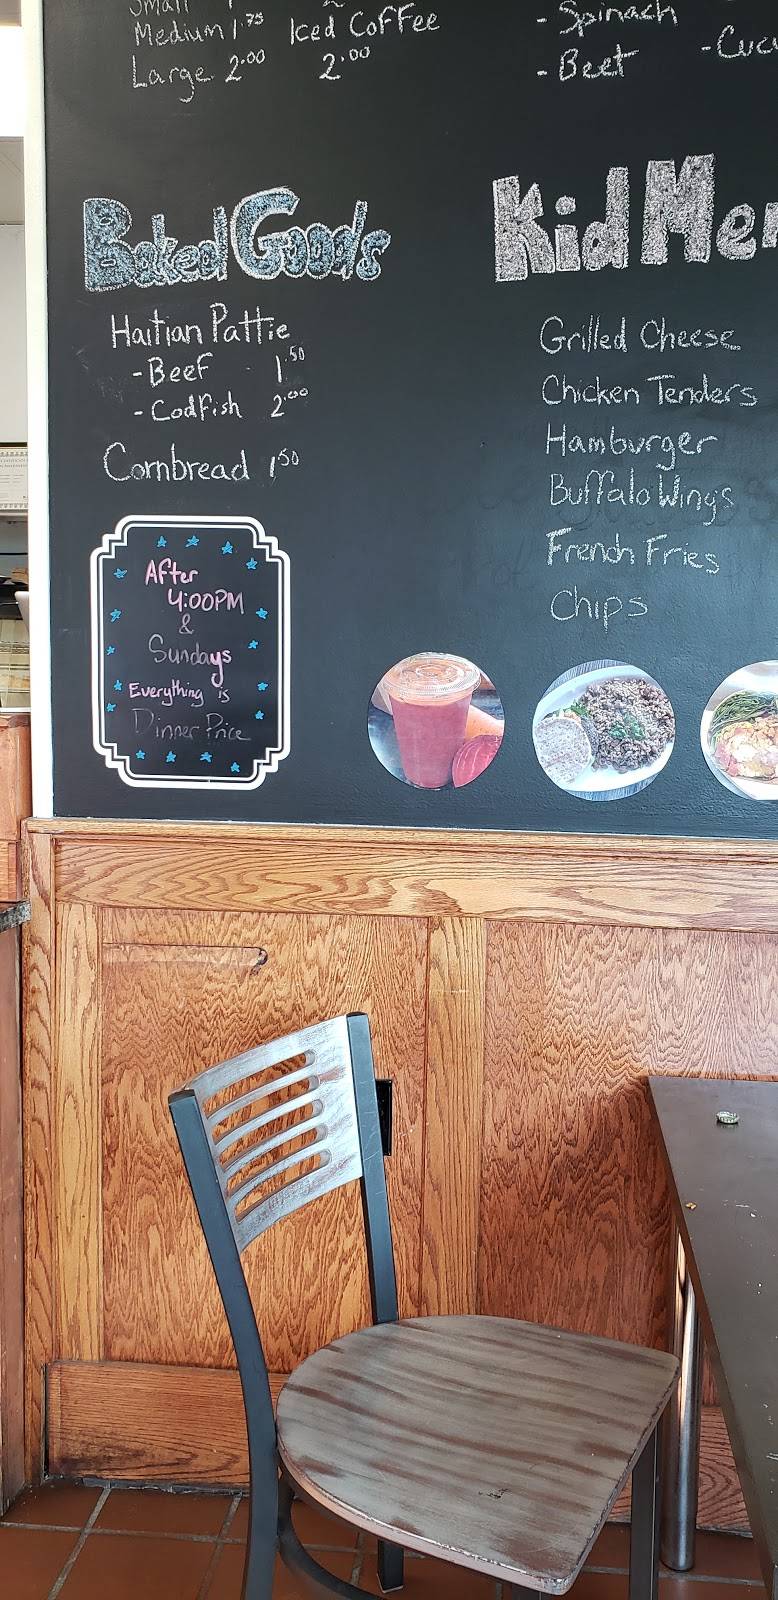 Small
Medium 1.75
Large 2.00
Iced Coffee
2.00
- Spinach
- Beet
- Cucu
Baked Goods
Haitian Pattie
- Beef - 1.50
- Codfish 2.00
Cornbread 1.50
After
4:00PM
&
Sundays
Everything is
Dinner Price
Kid Men
Grilled Cheese
Chicken Tenders
Hamburger
Buffalo Wings
French Fries
Chips